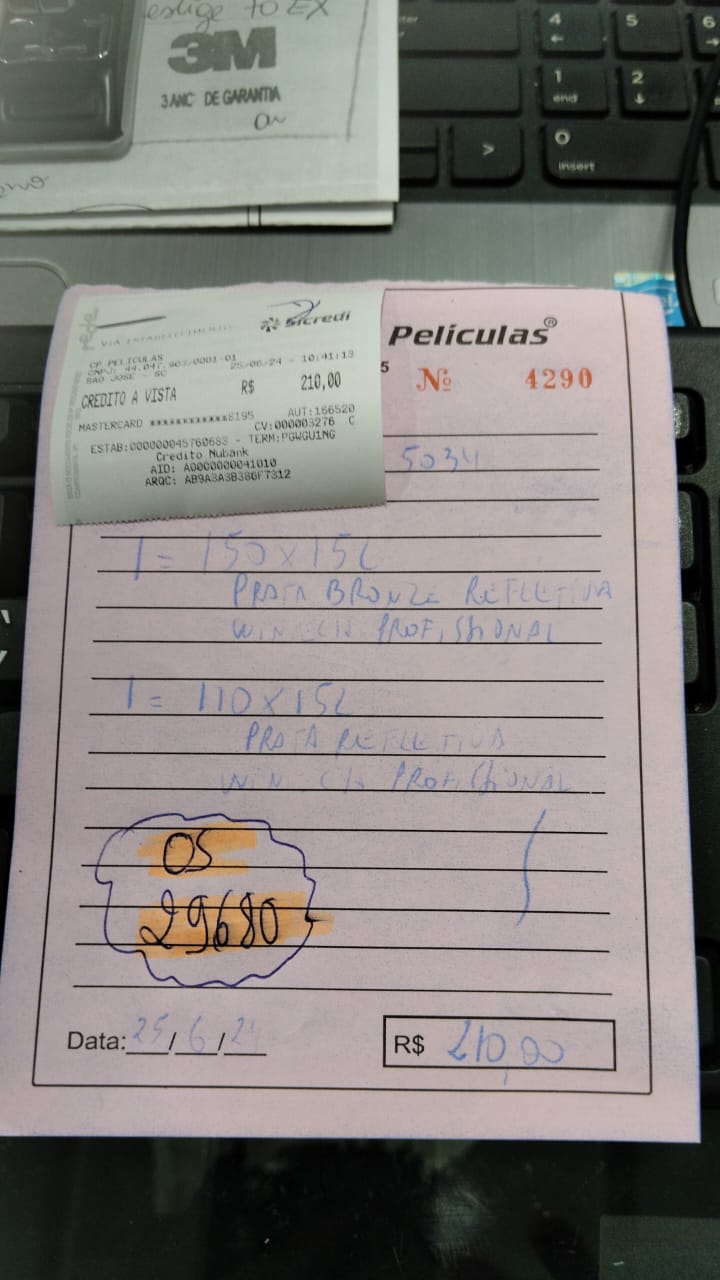 to EX
3M
3 ANC DE GARANTIA
4
5
6
1
end
2
0
insert
>
rede
VIA ESTABELECIMENTO
Sicredi
CP PELICULAS
CNPJ: 44.047.903/0001-01
SAO JOSE - SC
25/06/24 - 10:41:13
CREDITO A VISTA R$ 210,00
MASTERCARD ************8195 AUT:166520
CV:000003276 C
ESTAB:000000045760683 - TERM:PGWGU1NG
Credito Nubank
AID: A0000000041010
ARQC: AB9A3A3B386F7312
Películas®
5
Nº 4290
5034
1 = 150 X 152
PRATA BRONZE REFLETIVA
PROFISSIONAL
1 = 110 X 152
PRATA REFLETIVA
PROFISSIONAL
OS
29680
Data: 25/6/24
R$ 210,00